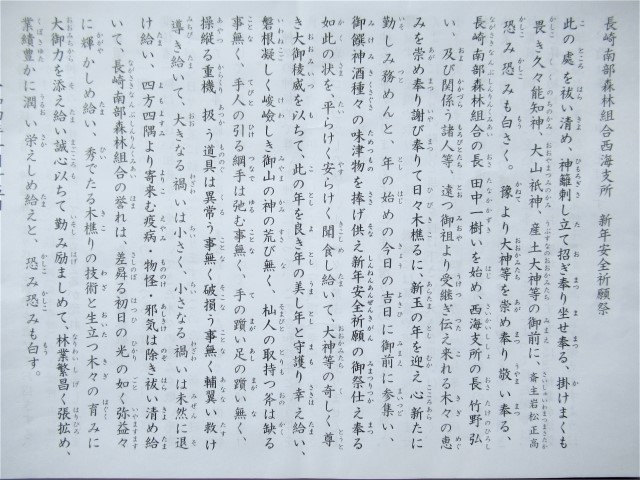 長崎南部森林組合西海支所　新年安全祈願祭
此の處を祓い清め、神籬刺し立て招ぎ奉り坐せ奉る、掛けまくも
畏き久々能知神、大山祇神、産土大神等の御前に、斎主岩松正高
恐み恐みも白さく。豫より大神等を崇め奉り敬い奉る、
長崎南部森林組合の長 田中一樹い始め、西海支所の長 竹野 弘
い、及び関係う諸人等、遠つ御祖より受継ぎ伝え来れる木々の恵
みを崇め奉り謝び奉りて日々木樵るに、新玉の年を迎え心新たに
勤しみ務めんと、年の始めの今日の吉日に御前に参集い、
御饌神酒種々の味津物を捧げ供え新年安全祈願の御祭仕え奉る
如此の状を、平らけく安らけく聞食し給いて、大神等の奇しく尊
き大御稜威を以ちて、此の年を良き年の美し年と守護り幸え給い、
磐根凝しく峻嶮しき御山の神の荒び無く、杣人の取持つ斧は缺る
事無く、手人の引る綱手は弛む事無く、手の躓い足の躓い無く、
操縦る重機、扱う道具は異常う事無、破損う事無く輔翼い救け
導き給いて、大きなる禍いは小さく、小さなる禍いは未然に退
け給い、四方四隅より寄来む疫病・物怪・邪気は除き祓い清め給
いて、長崎南部森林組合の誉れは、差昇る初日の光の如く弥益々
に輝かしめ給い、秀でたる木樵りの技術と生立つ木々の育みに
大御力を添え給い誠心以ちて勤み励ましめて、林業繁昌く張拡め、
業績豊かに潤い栄えしめ給えと、恐み恐みも白す。